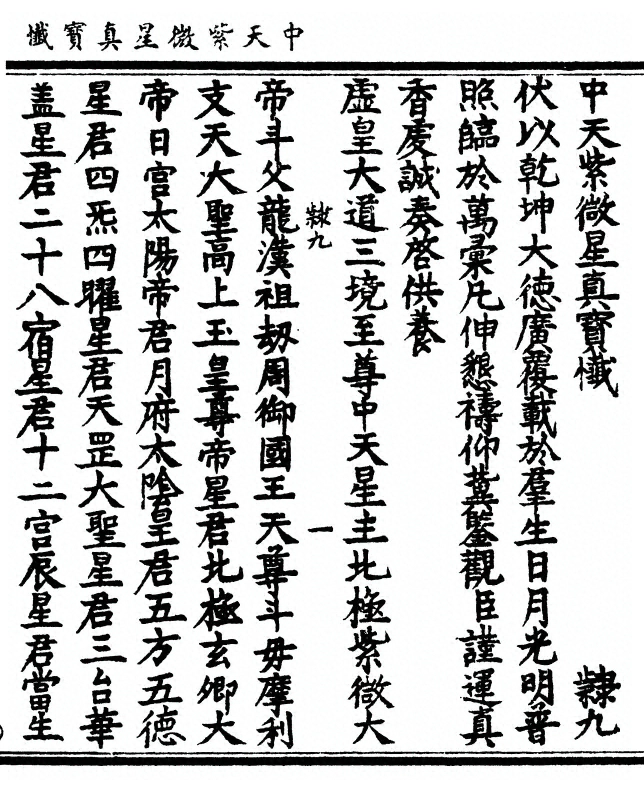 中天紫微星真寶懺
中天紫微星真寶懺 隸九
伏以乾坤大德廣覆載於羣生日月光明普
照臨於萬彙凡伸懇禱仰冀鑒觀臣謹運真
香虔誠奏啓供養
虛皇大道三境至尊中天星主北極紫微大
隸九 一
帝斗父龍漢祖劫周御國王天尊斗母摩利
支天大聖高上玉皇尊帝星君北極玄卿大
帝日宮太陽帝君月府太陰皇君五方五德
星君四炁四曜星君天罡大聖星君三台華
盖星君二十八宿星君十二宮辰星君當生